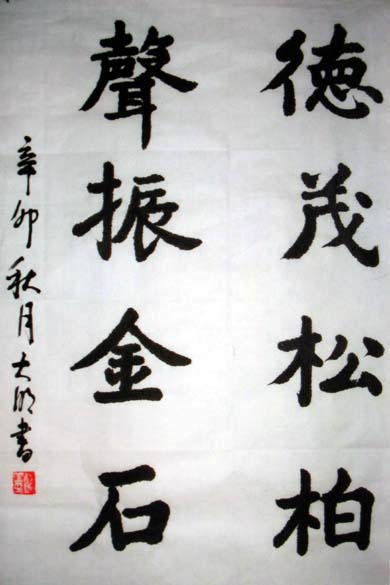 徳茂松柏
聲振金石
辛卯秋月大明書